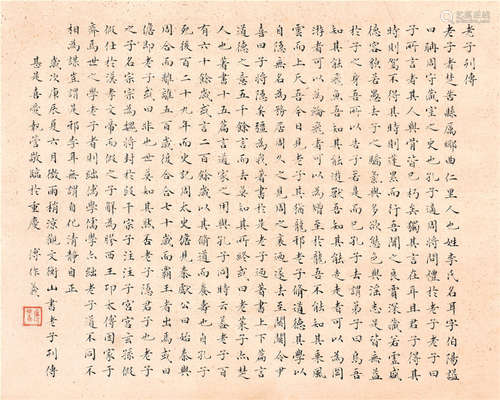 老子列傳
老子者楚苦縣厲鄉曲仁里人也姓李氏名耳字伯陽謚
曰聃周守藏室之史也孔子適周將問禮於老子老子曰
子所言者其人與骨皆已朽矣獨其言在耳且君子得其
時則駕不得其時則蓬累而行吾聞之良賈深藏若虛盛
德容貌若愚去子之驕氣與多欲態色與淫志是皆無益
於子之身吾所以告子若是而已孔子去謂弟子曰鳥吾
知其能飛魚吾知其能游獸吾知其能走走者可以為罔
游者可以為綸飛者可以為矰至於龍吾不能知其乘風
雲而上天吾今日見老子其猶龍邪老子脩道德其學以
自隱無名為務居周久之見周之衰迺遂去至關關令尹
喜曰子將隱矣彊為我著書於是老子迺著書上下篇言
道德之意五千餘言而去莫知其所終或曰老萊子亦楚
人也著書十五篇言道家之用與孔子同時云蓋老子百
有六十餘歲或言二百餘歲以其脩道而養壽也自孔子
死後百二十九年而史記周太史儋見秦獻公曰始秦與
周合而離離五百歲復合合七十歲而霸王者出焉或曰
儋即老子或曰非也世莫知其然否老子隱君子也老子
之子名宗宗為魏將封於段干宗子注注子宮宮玄孫假
假仕於漢孝文帝而假之子解為膠西王卬太傅因家于
齊焉世之學老子者則絀儒學儒學亦絀老子道不同不
相為謀豈謂是邪李耳無為自化清靜自正
歲次庚辰夏六月微雨稍涼觀文衡山書老子列傳
甚是喜愛執筆敬臨於重慶 傅作義